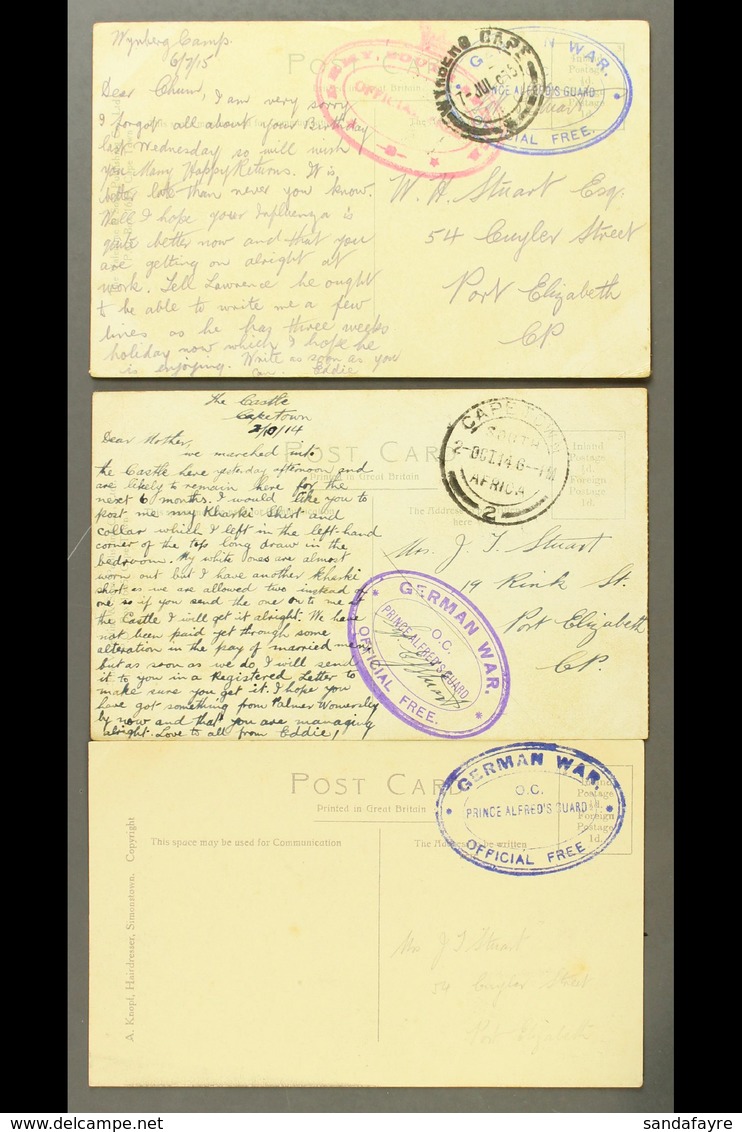 Wynberg Camp.
6/7/15
Dear Chum, I am very sorry
I forgot all about your Birthday
last Wednesday so will wish
you Many Happy Returns. It is
better late than never you know.
Well I hope your Influenza is
quite better now and that you
are getting on alright at
work. Tell Lawrence he ought
to be able to write me a few
lines as he has three weeks
holiday now which I hope he
is enjoying. Write as soon as you
can. Eddie
POST CARD
OFFICIAL
WYNBERG CAPE
7 JUL
GERMAN WAR.
PRINCE ALFRED'S GUARD
OFFICIAL FREE.
Inland
Postage
W. H. Stuart Esq.
54 Cuyler Street
Port Elizabeth
CP
The Castle
Capetown
2/10/14
Dear Mother,
we marched into
the Castle here yesterday afternoon and
are likely to remain here for the
next 6 months. I would like you to
post me my Kharki Shirt and
collar which I left in the left-hand
corner of the top long draw in the
bedroom. My white ones are almost
worn out but I have another kharki
shirt as we are allowed two instead of
one so if you send the one on to me at
the Castle I will get it alright. We have
not been paid yet through some
alteration in the pay of married men
but as soon as we do I will send
it to you in a Registered Letter to
make sure you get it. I hope you
have got something from Palmer Womersley
by now and that you are managing
alright. Love to all from Eddie
POST CARD
Printed in Great Britain
The Address
here
CAPE TOWN
SOUTH
2-OCT 14 6-PM
AFRICA
2
Inland
Postage
½d.
Foreign
Postage
1d.
Mrs. J. T. Stuart
19 Rink St.
Port Elizabeth
CP.
GERMAN WAR.
O.C.
PRINCE ALFRED'S GUARD
OFFICIAL FREE.
E Stuart
POST CARD
Printed in Great Britain
This space may be used for Communication
The Address to be written
A. Knopf, Hairdresser, Simonstown. Copyright
GERMAN WAR.
O.C.
PRINCE ALFRED'S GUARD
OFFICIAL FREE
Inland
Postage
½d.
Foreign
Postage
1d.
Mrs J T Stuart
54 Cuyler Street
Port Elizabeth
sandafayre